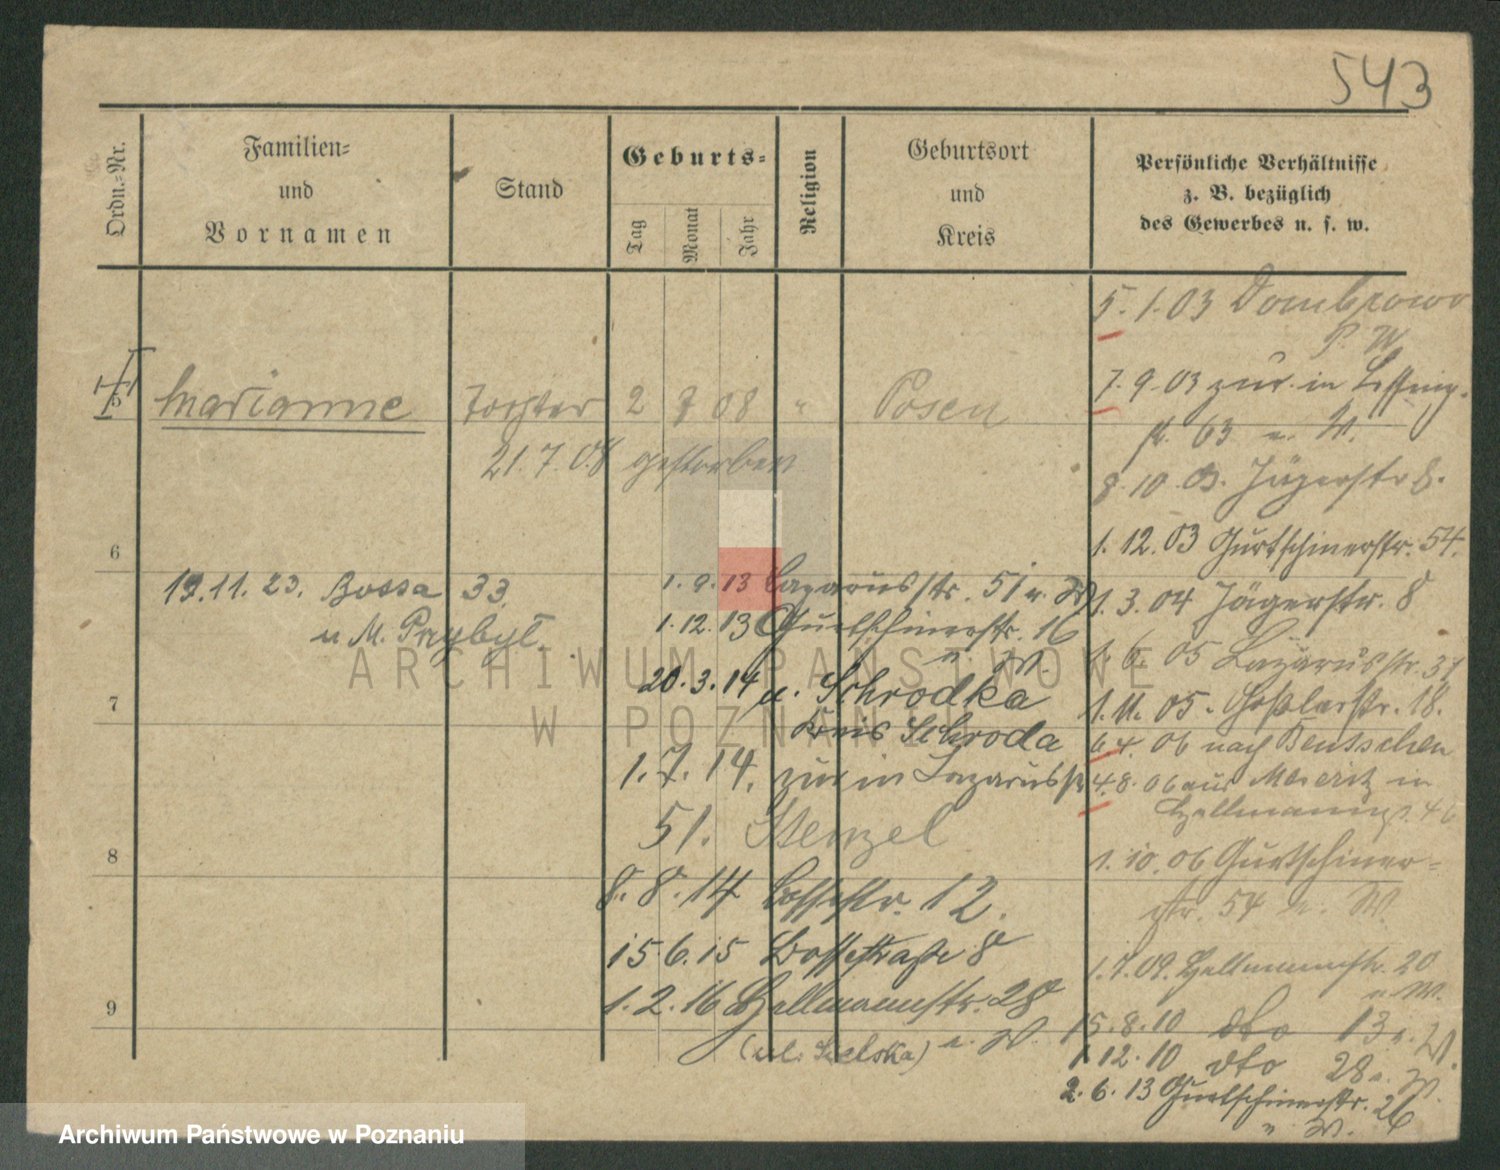 543
Ordn.-Nr.
Familien-
und
Vornamen
Stand
Geburts-
Tag
Monat
Jahr
Religion
Geburtsort
und
Kreis
Persönliche Verhältnisse
z. B. bezüglich
des Gewerbes u. s. w.
5 Marianne Tochter 2 7 08 " Posen
21.7.08 gestorben
6
19.11.23. Bossa 33.
u M. Przybyl.
7
8
9
1.9.13 Lazarusstr. 51 u. W
1.12.13 Gurtschinerstr. 16
u. W.
20.3.14 n. Schrodka
Kreis Schroda
1.7.14. zur in Lazarusstr
51. Stenzel
8.8.14 Bossestr. 12.
15.6.15 Bossestraße 8
1.2.16 Hellmannstr. 28
(ul. Kielska) u. W.
5.1.03 Dombrowo
P. W
7.9.03 zur. in Lessing-
str. 63 u. W.
8.10.03. Jägerstr 8.
1.12.03 Gurtschinerstr. 54.
1.3.04 Jägerstr. 8
1.6.05 Lazarusstr. 31
1.11.05. Goßlerstr. 18.
6.4.06 nach Bentschen
4.8.06 aus Meseritz in
Hellmannstr. 46
1.10.06 Gurtschiner-
str. 54 u. W.
1.7.09. Hellmannstr. 20
u W.
15.8.10 dto 13 u. W.
1.12.10 dto 28 u. W.
2.6.13 Gurtschinerstr. 26
u. W.
ARCHIWUM PAŃSTWOWE
W POZNANIU
Archiwum Państwowe w Poznaniu